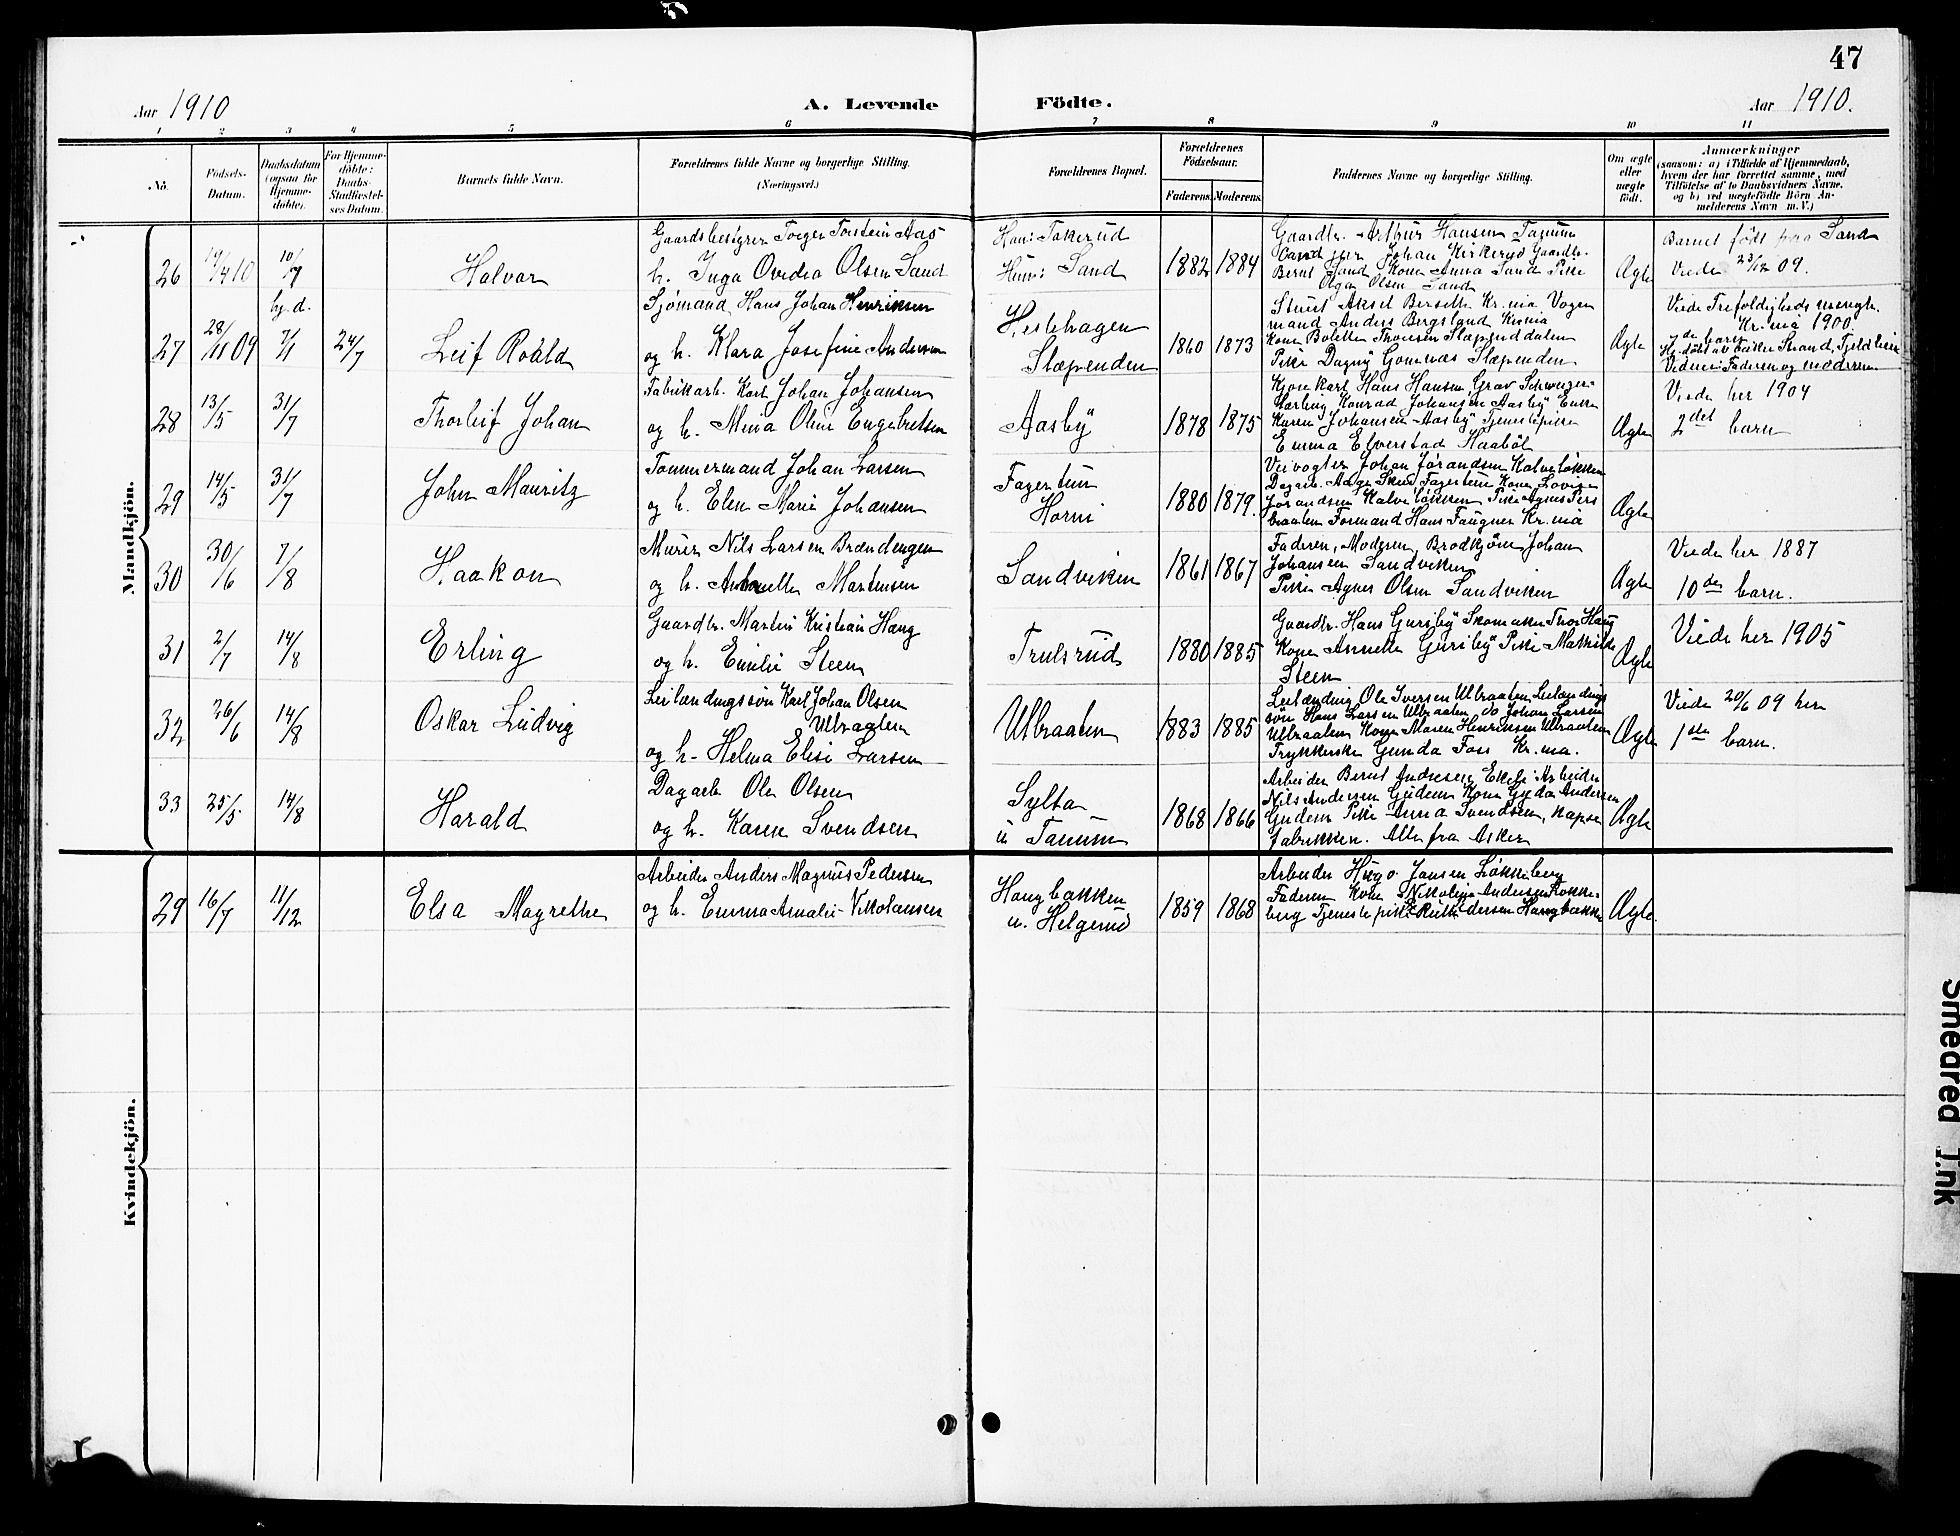 47
Aar 1910
A. Levende Födte.
Aar 1910.
1 2 3 4 5 6 7 8 9 10 11
No.
Födsels-
Datum.
Daabsdatum
(ogsaa for
Hjemme-
döbte).
For Hjemme-
döbte:
Daabs-
Stadfæstel-
ses Datum.
Barnets fulde Navn.
Forældrenes fulde Navne og borgerlige Stilling.
(Næringsvei.)
Forældrenes Bopæl.
Forældrenes
Födselsaar.
Faderens. Moderens.
Faddernes Navne og borgerlige Stilling.
Om ægte
eller
uægte
födt.
Anmærkninger
(saasom: a) i Tilfælde af Hjemmedaab,
hvem der har forrettet samme, med
Tilföielse af to Daabsvidners Navne,
og b) ved uægtefödte Börn An-
melderens Navn m. V.)
Mandkjön.
26
19/4 10
10/7
Halvor
Gaardsbesigrer Torger Torstein Aas
h. Inga Ovedia Olsen Sand
Han: Takerud
Hun: Sand
1882 1884
Gaardbr. Arthur Hansen Tanum
Johan Kirkerud Gaardbr.
Bernt Sand Kone Anna Sand Pike
Olga Olsen Sand
Ægte
Barnet födt paa Sand
Viede 23/12 09.
27
28/11 09
hj. d.
7/1
24/7
Leif Roald
Sjømand Hans Johan Henriksen
og h. Klara Josefine Andersen
Hestehagen
Slæpenden
1860 1873
Stud Aksel Berseth Kr.nia Vogn
mand Anders Bergsland Kr.nia
Kone Bolette Thoresen Slæpenddalen
Pike Dagny Gomnæs Slæpenden
Ægte
Viede Trefoldigheds menigh.
Kr.nia 1900.
7de barn
Hj.döbt av Strand,
Vidner: Faderen og moderen
28
13/5
31/7
Thorleif Johan
Fabrikarb. Karl Johan Johansen
og h. Mina Oline Engebretsen
Aasby
1878 1875
Hans Hansen Grav
Konrad Johansen Aasby Enke
Karen Johansen Aasby Tjenestepike
Emma Elverstad Haabøl
Ægte
Viede her 1904
2det barn
29
14/5
31/7
John Mauritz
Tømmermand Johan Larsen
og h. Elen Marie Johansen
Fagertun
Horni
1880 1879.
Veivogter Johan Jørandsen Kalveløkken
Dagarb. Aage Skud Fagertun Kone Lovise
Jørandsen Kalveløkken Pike Agnes Pers
braaten Formand Hans Faugner Kr.nia
Ægte
30
30/6
7/8
Haakon
Murer Nils Larsen Brændengen
og h. Martinsen
Sandviken
1861 1867
Faderen, Moderen, Brødkjører Johan
Johansen Sandviken
Pike Agnes Olsen Sandviken
Ægte
Viede her 1887
10de barn.
31
2/7
14/8
Erling
Gaardbr. Martin Kristian Haug
og h. Emilie Steen
Trulsrud
1880 1885
Gaardbr. Hans Gursby Skomaker Thor Haug
Kone Annette Gursby Pike Mathilde
Steen
Ægte
Viede her 1905
32
26/6
14/8
Oskar Ludvig
Leilændingssøn Karl Johan Olsen
Ulbraaten
og h. Helma Elise Larsen
Ulbraaten
1883 1885
Leilænding Ole Iversen Ulbraaten Leilændings
søn Hans Larsen Ulbraaten do Johan Larsen
Ulbraaten Kone Maren Henriksen Ulbraaten
Trykkerske Gunda Foss Kr.nia.
Ægte
Viede 20/6 09 her
1ste barn.
33
25/5
14/8
Harald
Dagarb Ole Olsen
og h. Karen Svendsen
Sylta
u Tanum
1868 1866
Arbeider Bernt Andresen Arbeider
Nils Andersen Gudem Kone Gyda Andersen
Gudem Pike Anna Svendsen, Kapse
fabrikken. Alle fra Asker
Ægte
Kvindekjön.
29
16/7
11/12
Elsa Magrethe
Arbeider Anders Magnus Pedersen
og h. Emma Amalie Nikolausen
Haugbakken
u. Helgerud
1859 1868
Arbeider Hugo Jansen Løkkeberg
Faderen Kone Nikoline Andersen Løkke-
berg Tjenestepike Ruth Pedersen Haugbakken
Ægte.
Smeared Ink